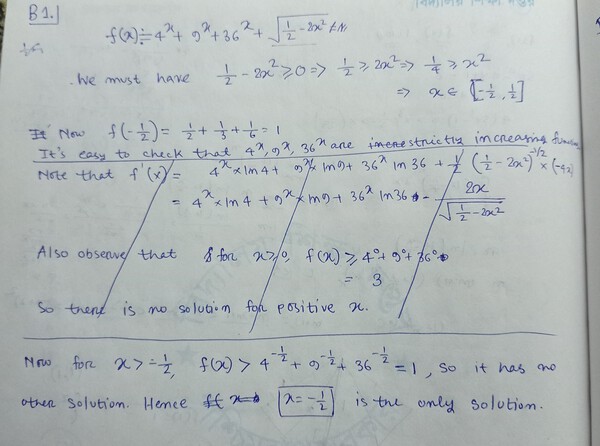 B1.
f(x) := 4^x + 9^x + 36^x + √(1/2 - 2x²)
We must have 1/2 - 2x² ≥ 0 => 1/2 ≥ 2x² => 1/4 ≥ x²
=> x ∈ [-1/2, 1/2]
Now f(-1/2) = 1/2 + 1/3 + 1/6 = 1
It's easy to check that 4^x, 9^x, 36^x are strictly increasing
Note that f'(x) = 4^x × ln 4 + 9^x × ln 9 + 36^x ln 36 + 1/2 (1/2 - 2x²)^(-1/2) × (-4x)
= 4^x × ln 4 + 9^x × ln 9 + 36^x ln 36 - 2x/√(1/2 - 2x²)
Also observe that for x ≥ 0, f(x) ≥ 4^0 + 9^0 + 36^0
= 3
So there is no solution for positive x.
Now for x > -1/2, f(x) > 4^(-1/2) + 9^(-1/2) + 36^(-1/2) = 1, so it has no
other solution. Hence x = -1/2 is the only solution.